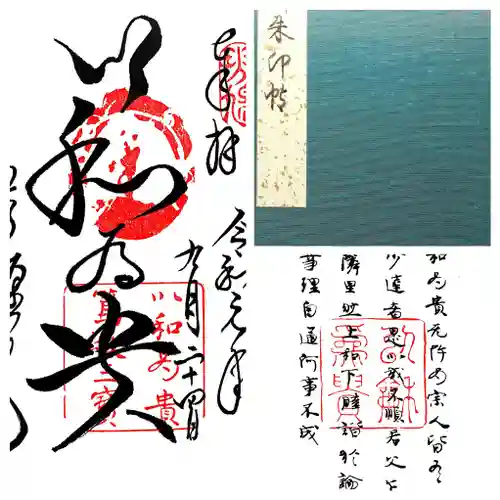 奉拝
令和元年
九月二十四日
以和為貴
以和為貴
篤敬三寶
朱印帖
和為貴无忤為宗人皆有
少達者思以我不順君父乍
隣里然上和下睦諧於論
事理自通何事不成